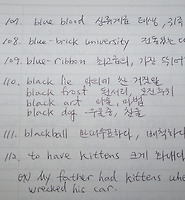 107. blue blood 상류계층 태생, 귀족
108. blue-brick university 전통있는
109. blue-ribbon 최고의, 가장
110. black lie 악의 있는 거짓말
black frost 된서리,
black art 마술, 마법
black dog 우울증,
111. blackball 반대투표하다, 배척하다
112. to have kittens 크게 화내다
ex) My father had kittens whe
wrecked his car.